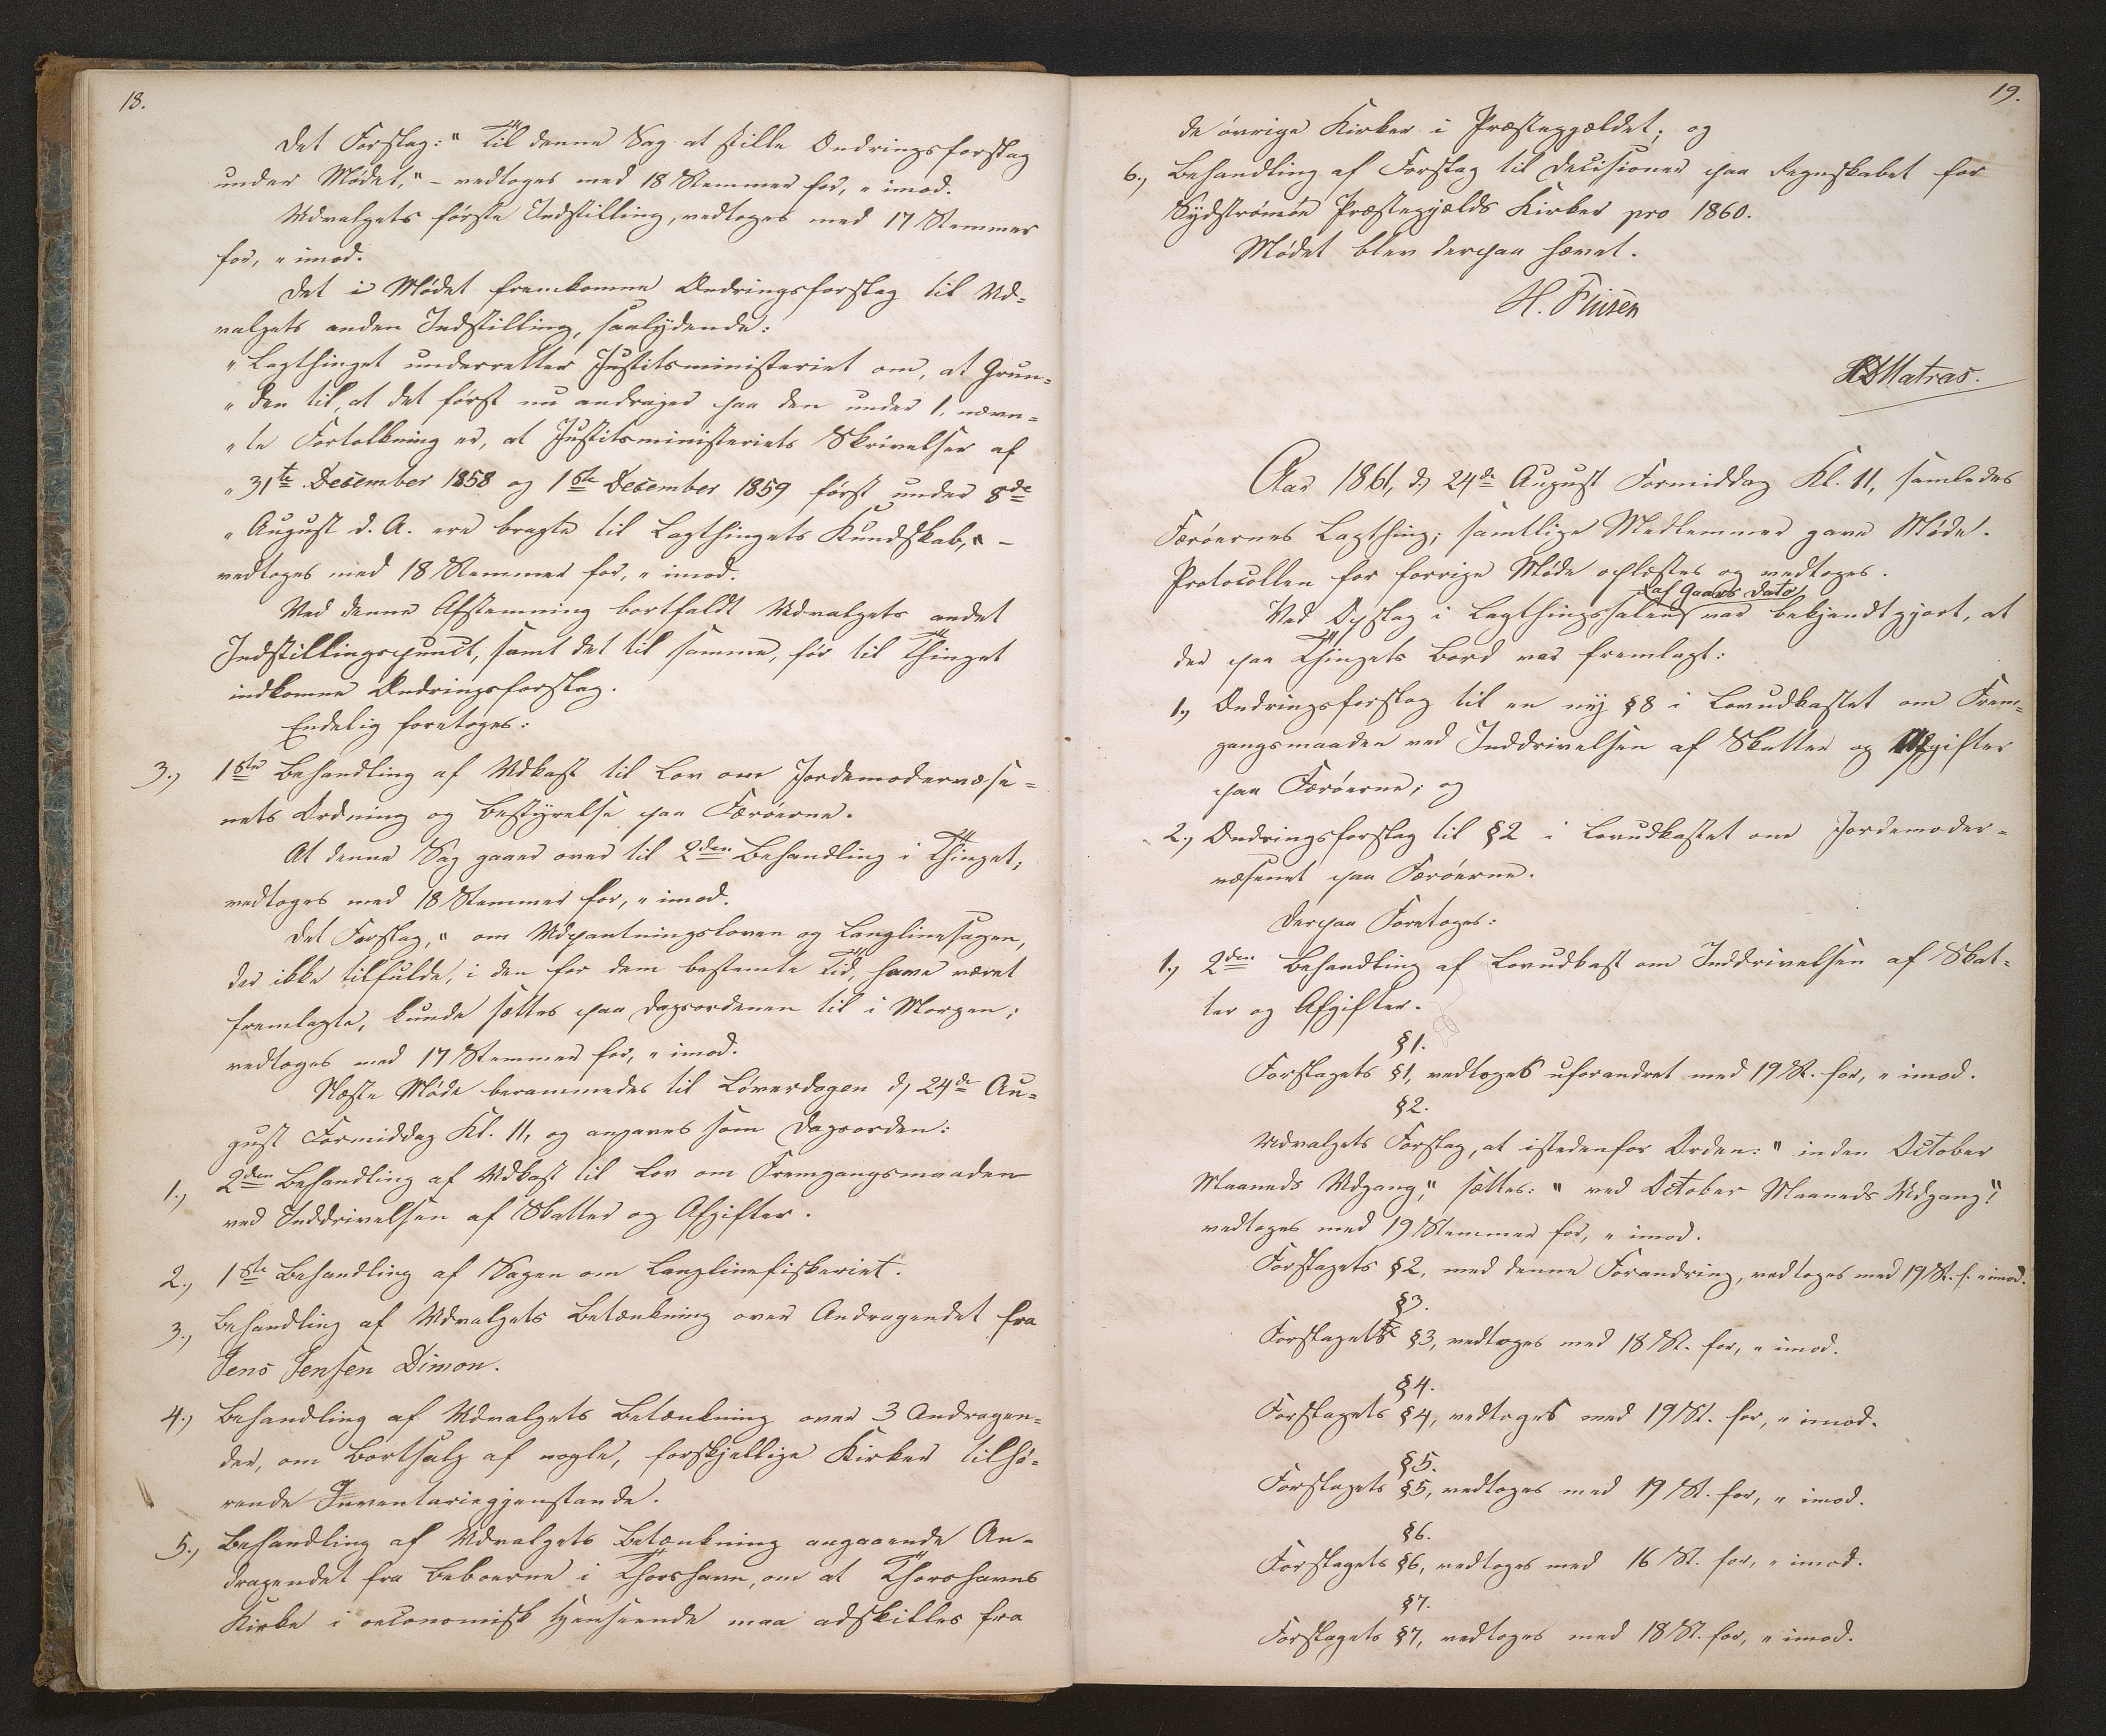 18.
Det Forslag: "Til denne Sag at stille Ændringsforslag
under Mødet," – vedtoges med 18 Stemmer for, " imod.
Udvalgets første Indstilling, vedtoges med 17 Stemmer
for, " imod.
Det i Mødet fremkomne Ændringsforslag til Ud-
valgets anden Indstilling, saalydende:
"Lagthinget underretter Justitsministeriet om, at Grun-
"den til, at det først nu andrages paa den under 1, nævn-
"te Fortolkning er, at Justitsministeriets Skrivelser af
"31te December 1858 og 1ste December 1859 først under 8de
"August d. A. ere bragte til Lagthingets Kundskab," –
vedtoges med 18 Stemmer for, " imod.
Ved denne Afstemning bortfaldt Udvalgets andet
Indstillingspunct, samt det til samme, før til Thinget
indkomne Ændringsforslag.
Endelig foretoges:
3.) 1ste Behandling af Udkast til Lov om Jordemodervæse-
nets Ordning og Bestyrelse paa Færøerne.
At denne Sag gaaer over til 2den Behandling i Thinget;
vedtoges med 18 Stemmer for, " imod.
Det Forslag, " om Udpantningsloven og Langlinesagen,
der ikke tilfulde, i den for dem bestemte Tid, have været
fremlagte, kunde sættes paa Dagsordenen til i Morgen;
vedtoges med 17 Stemmer for, " imod.
Næste Møde berammedes til Løverdagen d, 24de Au-
gust Formiddag Kl. 11, og angaves som Dagsorden:
1.) 2den Behandling af Udkast til Lov om Fremgangsmaaden
ved Inddrivelsen af Skatter og Afgifter.
2.) 1ste Behandling af Sagen om Langlinefiskeriet.
3.) Behandling af Udvalgets Betænkning over Andragendet fra
Jens Jensen Dimon.
4.) Behandling af Udvalgets Betænkning over 3 Andragen-
der, om Bortsalg af nogle, forskjellige Kirker tilhø-
rende Inventariegjenstande.
5.) Behandling af Udvalgets Betænkning angaaende An-
dragendet fra Beboerne i Thorshavn, om at Thorshavns
Kirke i oeconomisk Henseende maa adskilles fra
19.
de øvrige Kirker i Præstegjældet; og
6.) Behandling af Forslag til Decisioner paa Regnskabet for
Sydstrømøe Præstegjælds Kirker pro 1860.
Mødet blev derpaa hævet.
Matras.
Aar 1861, d, 24de August Formiddag Kl. 11, samledes
Færøernes Lagthing; samtlige Medlemmer gave Møde.
Protocollen for forrige Møde oplæstes og vedtoges.
af Gaars Dato
Ved Opslag i Lagthingssalen var bekjendtgjort, at
der paa Thingets Bord var fremlagt:
1.) Ændringsforslag til en ny §8 i Lovudkastet om Frem-
gangsmaaden ved Inddrivelsen af Skatter og Afgifter
paa Færøerne; og
2.) Ændringsforslag til §2 i Lovudkastet om Jordemoder-
væsenet paa Færøerne.
Derpaa Foretoges:
1.) 2den Behandling af Lovudkast om Inddrivelsen af Skat-
ter og Afgifter.
§1.
Forslagets §1, vedtoges uforandret med 19 St. for, " imod.
§2.
Udvalgets Forslag, at istedenfor Orden: "inden October
Maaneds Udgang," sættes: "ved October Maaneds Udgang"
vedtoges med 19 Stemmer for, " imod.
Forslagets §2, med denne Forandring, vedtoges med 19 St. f. " imod.
§3.
Forslagets §3, vedtoges med 18 St. for, " imod.
§4.
Forslagets §4, vedtoges med 19 St. for, " imod.
§5.
Forslagets §5, vedtoges med 19 St. for, " imod.
§6.
Forslagets §6, vedtoges med 16 St. for, " imod.
§7.
Forslagets §7, vedtoges med 18 St. for, " imod.